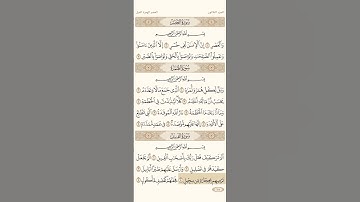 الجزء الثلاثون
سُورَةُ العَصْرِ
بِسْمِ ٱللَّهِ ٱلرَّحْمَٰنِ ٱلرَّحِيمِ
وَٱلْعَصْرِ ١ إِنَّ ٱلْإِنسَٰنَ لَفِى خُسْرٍ ٢ إِلَّا ٱلَّذِينَ ءَامَنُوا۟
وَعَمِلُوا۟ ٱلصَّٰلِحَٰتِ وَتَوَاصَوْا۟ بِٱلْحَقِّ وَتَوَاصَوْا۟ بِٱلصَّبْرِ ٣
سُورَةُ الهُمَزَةِ
بِسْمِ ٱللَّهِ ٱلرَّحْمَٰنِ ٱلرَّحِيمِ
وَيْلٌ لِّكُلِّ هُمَزَةٍ لُّمَزَةٍ ١ ٱلَّذِى جَمَعَ مَالًا وَعَدَّدَهُۥ ٢
يَحْسَبُ أَنَّ مَالَهُۥٓ أَخْلَدَهُۥ ٣ كَلَّا لَيُنۢبَذَنَّ فِى ٱلْحُطَمَةِ ٤
وَمَآ أَدْرَىٰكَ مَا ٱلْحُطَمَةُ ٥ نَارُ ٱللَّهِ ٱلْمُوقَدَةُ ٦ ٱلَّتِى تَطَّلِعُ
عَلَى ٱلْأَفْـِٔدَةِ ٧ إِنَّهَا عَلَيْهِم مُّؤْصَدَةٌ ٨ فِى عَمَدٍ مُّمَدَّدَةٍۭ ٩
سُورَةُ الفِيلِ
بِسْمِ ٱللَّهِ ٱلرَّحْمَٰنِ ٱلرَّحِيمِ
أَلَمْ تَرَ كَيْفَ فَعَلَ رَبُّكَ بِأَصْحَٰبِ ٱلْفِيلِ ١ أَلَمْ يَجْعَلْ
كَيْدَهُمْ فِى تَضْلِيلٍ ٢ وَأَرْسَلَ عَلَيْهِمْ طَيْرًا أَبَابِيلَ ٣
تَرْمِيهِم بِحِجَارَةٍ مِّن سِجِّيلٍ ٤ فَجَعَلَهُمْ كَعَصْفٍ مَّأْكُولٍۭ ٥